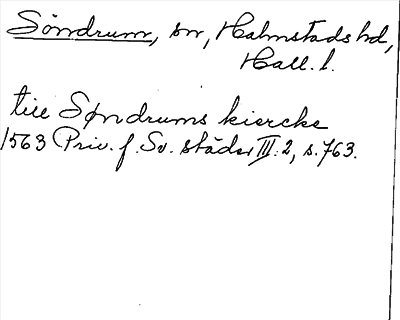 Söndrum, sn, Halmstads hd,
Hall. l.
till Søndrums kiercke
1563 Priv. f. Sv. städer III: 2, s. 763.